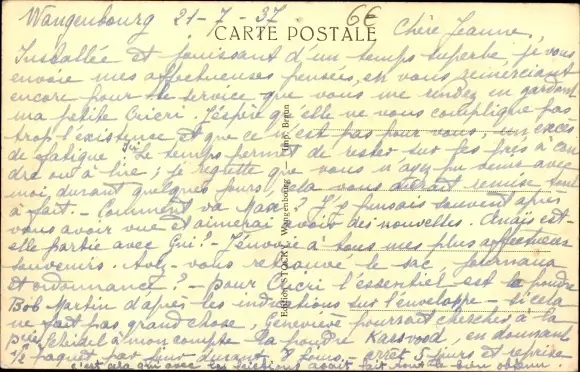 Wangenbourg 21-7-37
6€
CARTE POSTALE
Chère Jeanne,
Installée et jouissant d'un temps superbe je vous
envoie mes affectueuses pensées, en vous remerciant
encore pour le service que vous me rendez en gardant
ma petite Cricri. J'espère qu'elle ne vous complique pas
trop l'existence et que ce n'est pas pour vous, un excès
de fatigue. Le temps permet de rester sur les prés à
ou à lire; je regrette que vous n'ayez pu venir avec
moi durant quelques jours, cela vous aurait remise tout
à fait. - Comment va Max? J'y pensais souvent après
vous avoir vue et aimerai avoir des nouvelles. Anaïs est-
elle partie avec Gui? - J'envoie à tous mes plus affectueux
souvenirs. Avez-vous retrouvé le sac, journaux
et ordonnance? - pour Cricri l'essentiel est la poudre
Bob Martin d'après les indications sur l'enveloppe - si cela
ne fait pas grand chose, Geneviève pourrait chercher à la
à mon compte la poudre Karsvood, en donnant
1/2 paquet par jour durant 8 jours. - arrêt 5 jours et reprise
c'est avec ces
Edition STOCKY, Wangenbourg - Imp. Bergun